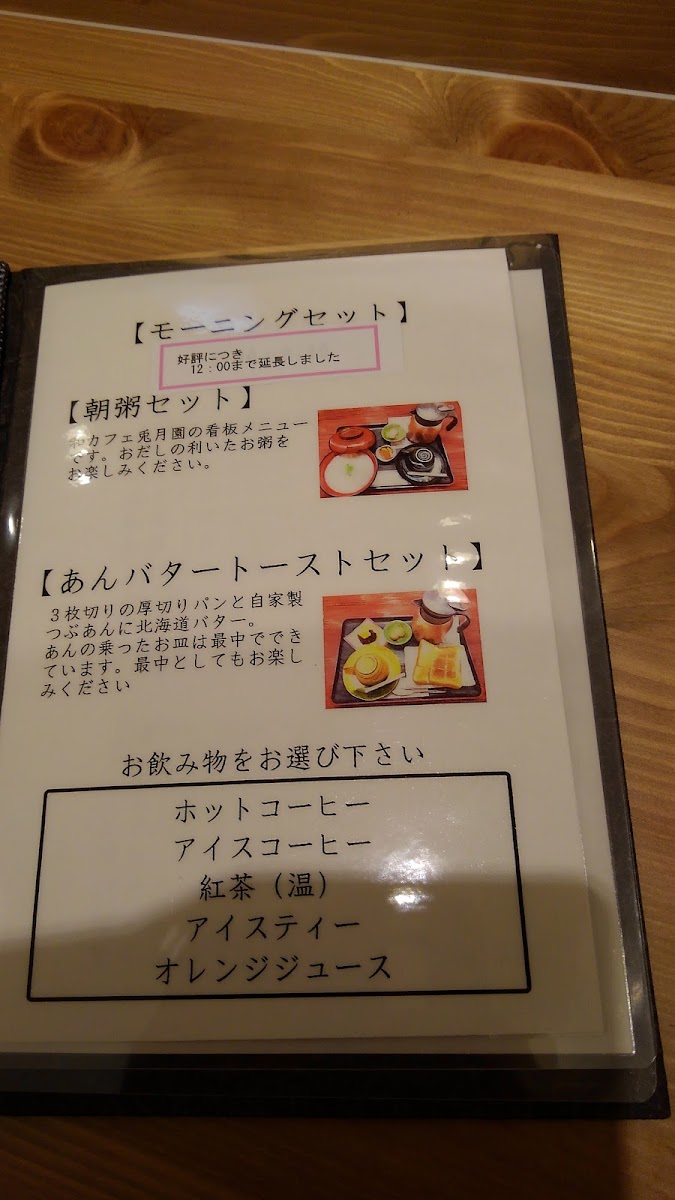 【モーニングセット】
好評につき
12：00まで延長しました
【朝粥セット】
和カフェ兎月園の看板メニュー
です。おだしの利いたお粥を
お楽しみください。
【あんバタートーストセット】
３枚切りの厚切りパンと自家製
つぶあんに北海道バター。
あんの乗ったお皿は最中ででき
ています。最中としてもお楽し
みください
お飲み物をお選び下さい
ホットコーヒー
アイスコーヒー
紅茶（温）
アイスティー
オレンジジュース